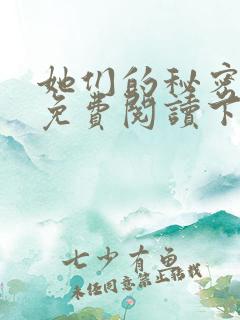 她们的秘密
免費閱讀下
七少有魚
未经同意禁止转载